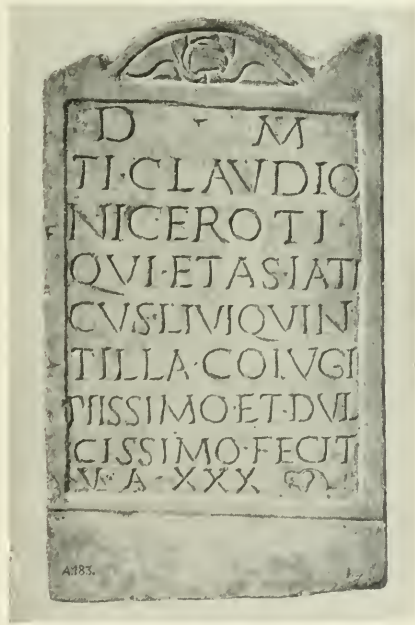 D · M
TI·CLAVDIO
NICEROTI·
QVI·ETAS·IATI
CVS·LIVIQVIN
TILLA·COIVGI
PIISSIMO·ET·DVL
CISSIMO·FECIT
V·A·XXX
A.183.